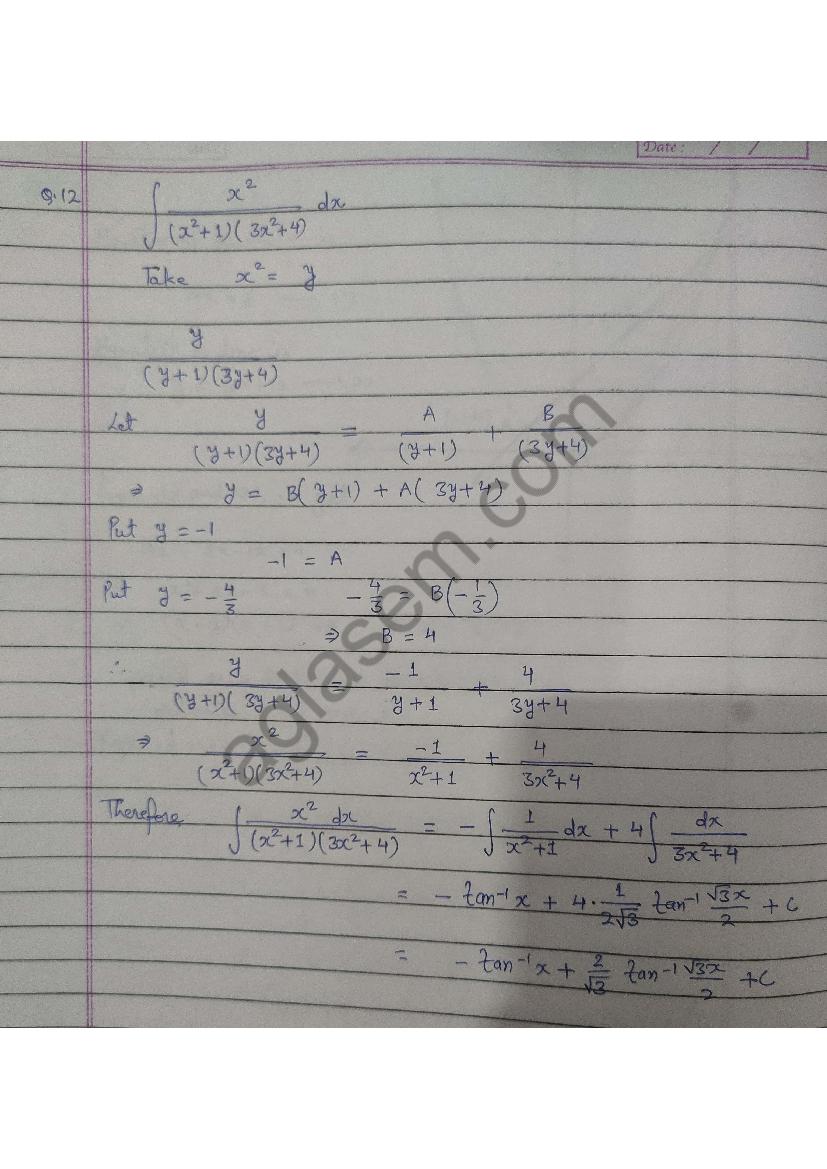 Date: / /
Q.12 ∫ x²/((x²+1)(3x²+4)) dx
Take x² = y
y/((y+1)(3y+4))
Let y/((y+1)(3y+4)) = A/(y+1) + B/(3y+4)
⇒ y = B(y+1) + A(3y+4)
Put y = -1
-1 = A
Put y = -4/3 -4/3 = B(-1/3)
⇒ B = 4
∴ y/((y+1)(3y+4)) = -1/(y+1) + 4/(3y+4)
⇒ x²/((x²+1)(3x²+4)) = -1/(x²+1) + 4/(3x²+4)
Therefore ∫ x² dx/((x²+1)(3x²+4)) = -∫ 1/(x²+1) dx + 4∫ dx/(3x²+4)
= -tan⁻¹x + 4·1/(2√3) tan⁻¹ √3x/2 + C
= -tan⁻¹x + 2/√3 tan⁻¹ √3x/2 + C
aglasem.com